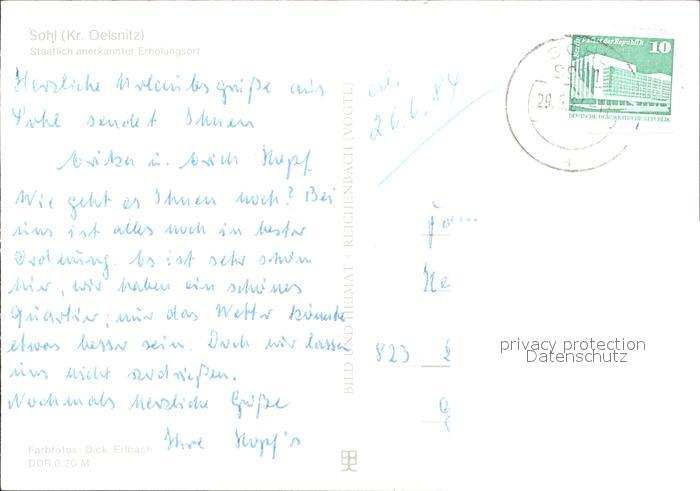 Sohl (Kr. Oelsnitz)
Staatlich anerkannter Erholungsort
Herzliche Urlaubsgrüße aus
Sohl sendet Ihnen
Erika u. Erich Kopf
Wie geht es Ihnen noch? Bei
uns ist alles noch in bester
Ordnung. Es ist sehr schön
hier, wir haben ein schönes
Quartier; nur das Wetter könnte
etwas besser sein. Doch wir lassen
uns nicht verdrießen.
Nochmals herzliche Grüße
Ihre Kopf's
Farbfotos: Dick, Erlbach
DDR 0,20 M
BILD UND HEIMAT · REICHENBACH (VOGTL)
26.6.84
10
Palast der Republik
DEUTSCHE DEMOKRATISCHE REPUBLIK
29.
823
privacy protection
Datenschutz